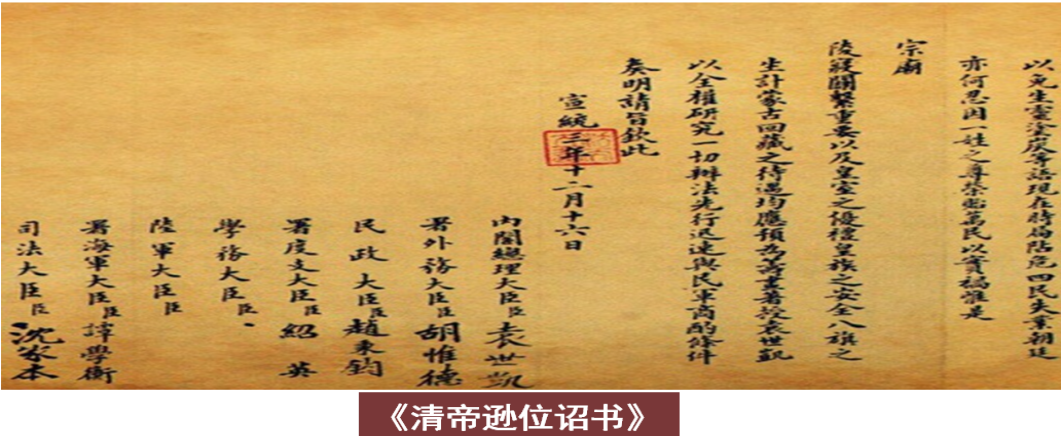 以免生靈塗炭等語現在時局阽危四民失業朝廷
亦何忍因一姓之尊榮貽萬民以實禍惟是
宗廟
陵寢關繫重要以及皇室之優禮皇族之安全八旗之
生計蒙古回藏之待遇均應預為籌畫著授袁世凱
以全權研究一切辦法先行迅速與民軍商酌條件
奏明請旨欽此
宣統三年十二月十六日
內閣總理大臣臣袁世凱
署外務大臣臣胡惟德
民政大臣臣趙秉鈞
署度支大臣臣紹英
學務大臣臣
陸軍大臣臣
署海軍大臣臣譚學衡
司法大臣臣沈家本
《清帝逊位诏书》